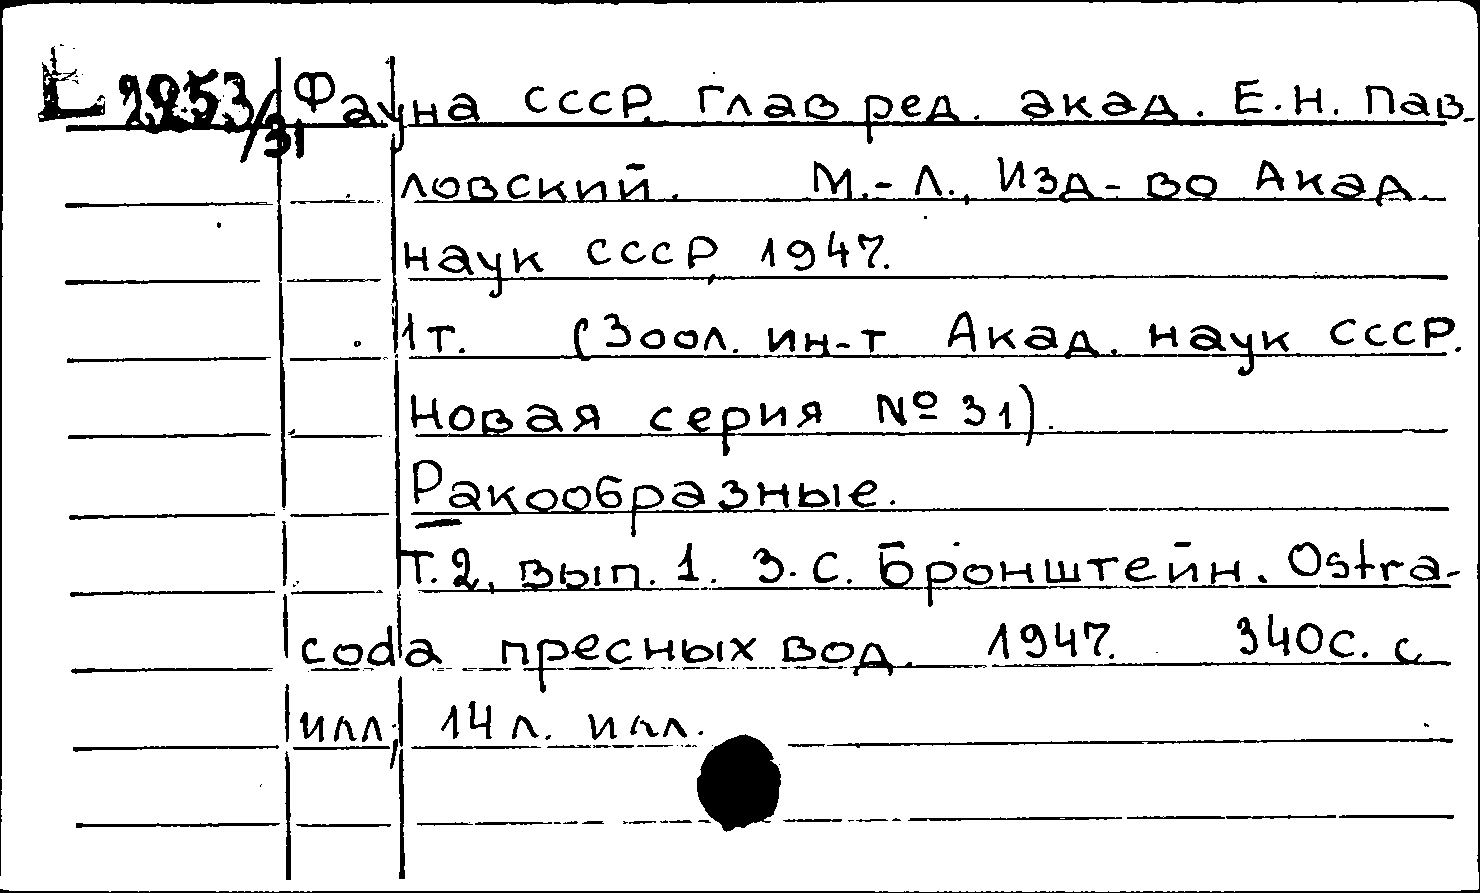 E 2253/31 Фауна СССР. Глав ред. акад. Е.Н. Пав-
ловский. М.-Л., Изд-во Акад.
наук СССР, 1947.
1т. (Зоол. ин-т Акад. наук СССР.
Новая серия № 31).
Ракообразные.
Т.2, вып. 1. З.С. Бронштейн. Ostra-
coda пресных вод. 1947. 340с. с
илл, 14 л. илл.